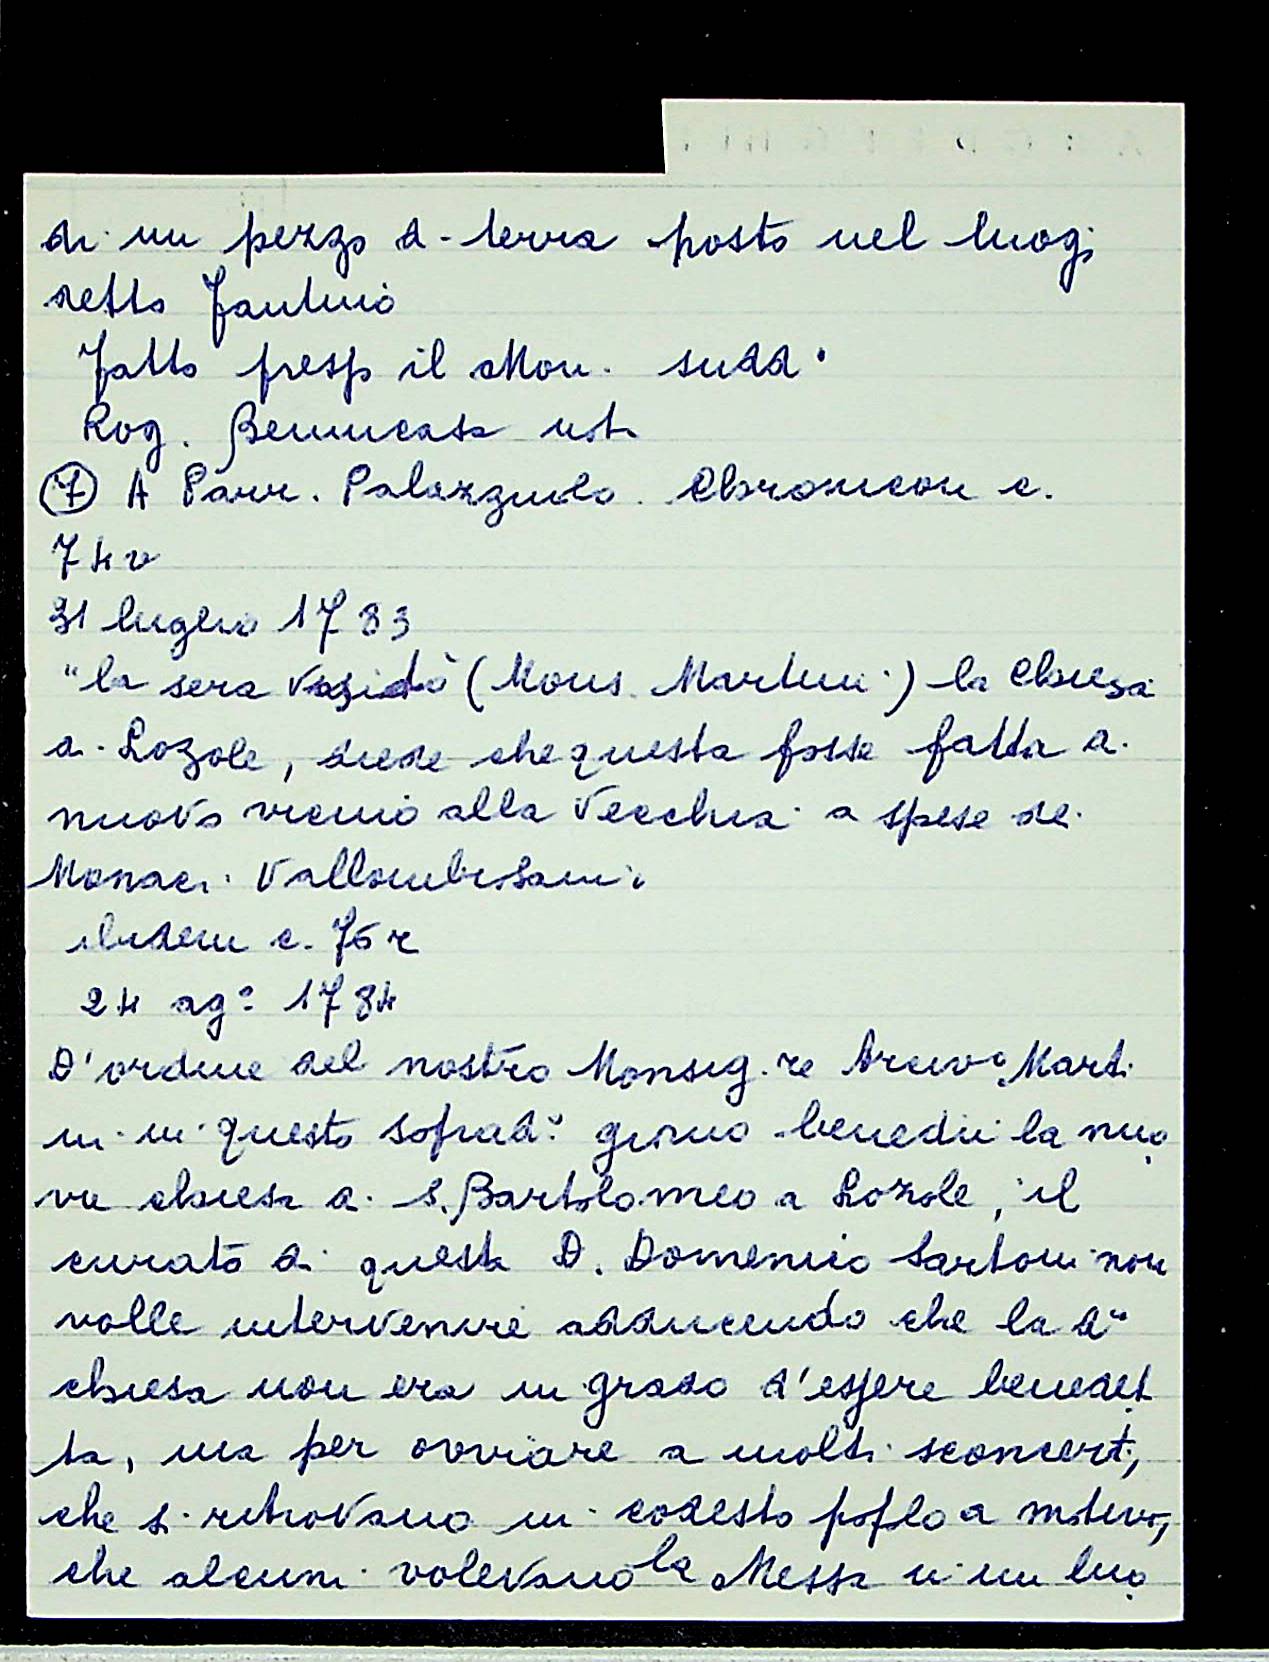 di un pezzo di terra posto nel luogo
detto Fantino
Fatto presso il Mon. sudd°
Rog. Benincasa not.
(7) A Parr. Palazzuolo. Chronicon c.
74v
31 luglio 1783
"la sera visidò (Mons. Martini) la Chiesa
di Lozzole, diede che questa fosse fatta di
nuovo vicino alla Vecchia a spese de
Monaci Vallombrosani.
ibidem c. 76r
24 ag° 1784
D'ordine del nostro Monsig.re Arciv° Marti
ni in questo soprad° giorno benedii la nuo
va chiesa di S. Bartolomeo a Lozole, il
curato di questa D. Domenico Sartoni non
volle intervenire adducendo che la dª
chiesa non era in grado d'essere benedet
ta, ma per ovviare a molti sconcerti,
che si ritrovano in codesto popolo a motivo,
che alcuni volevano la Messa in un luo